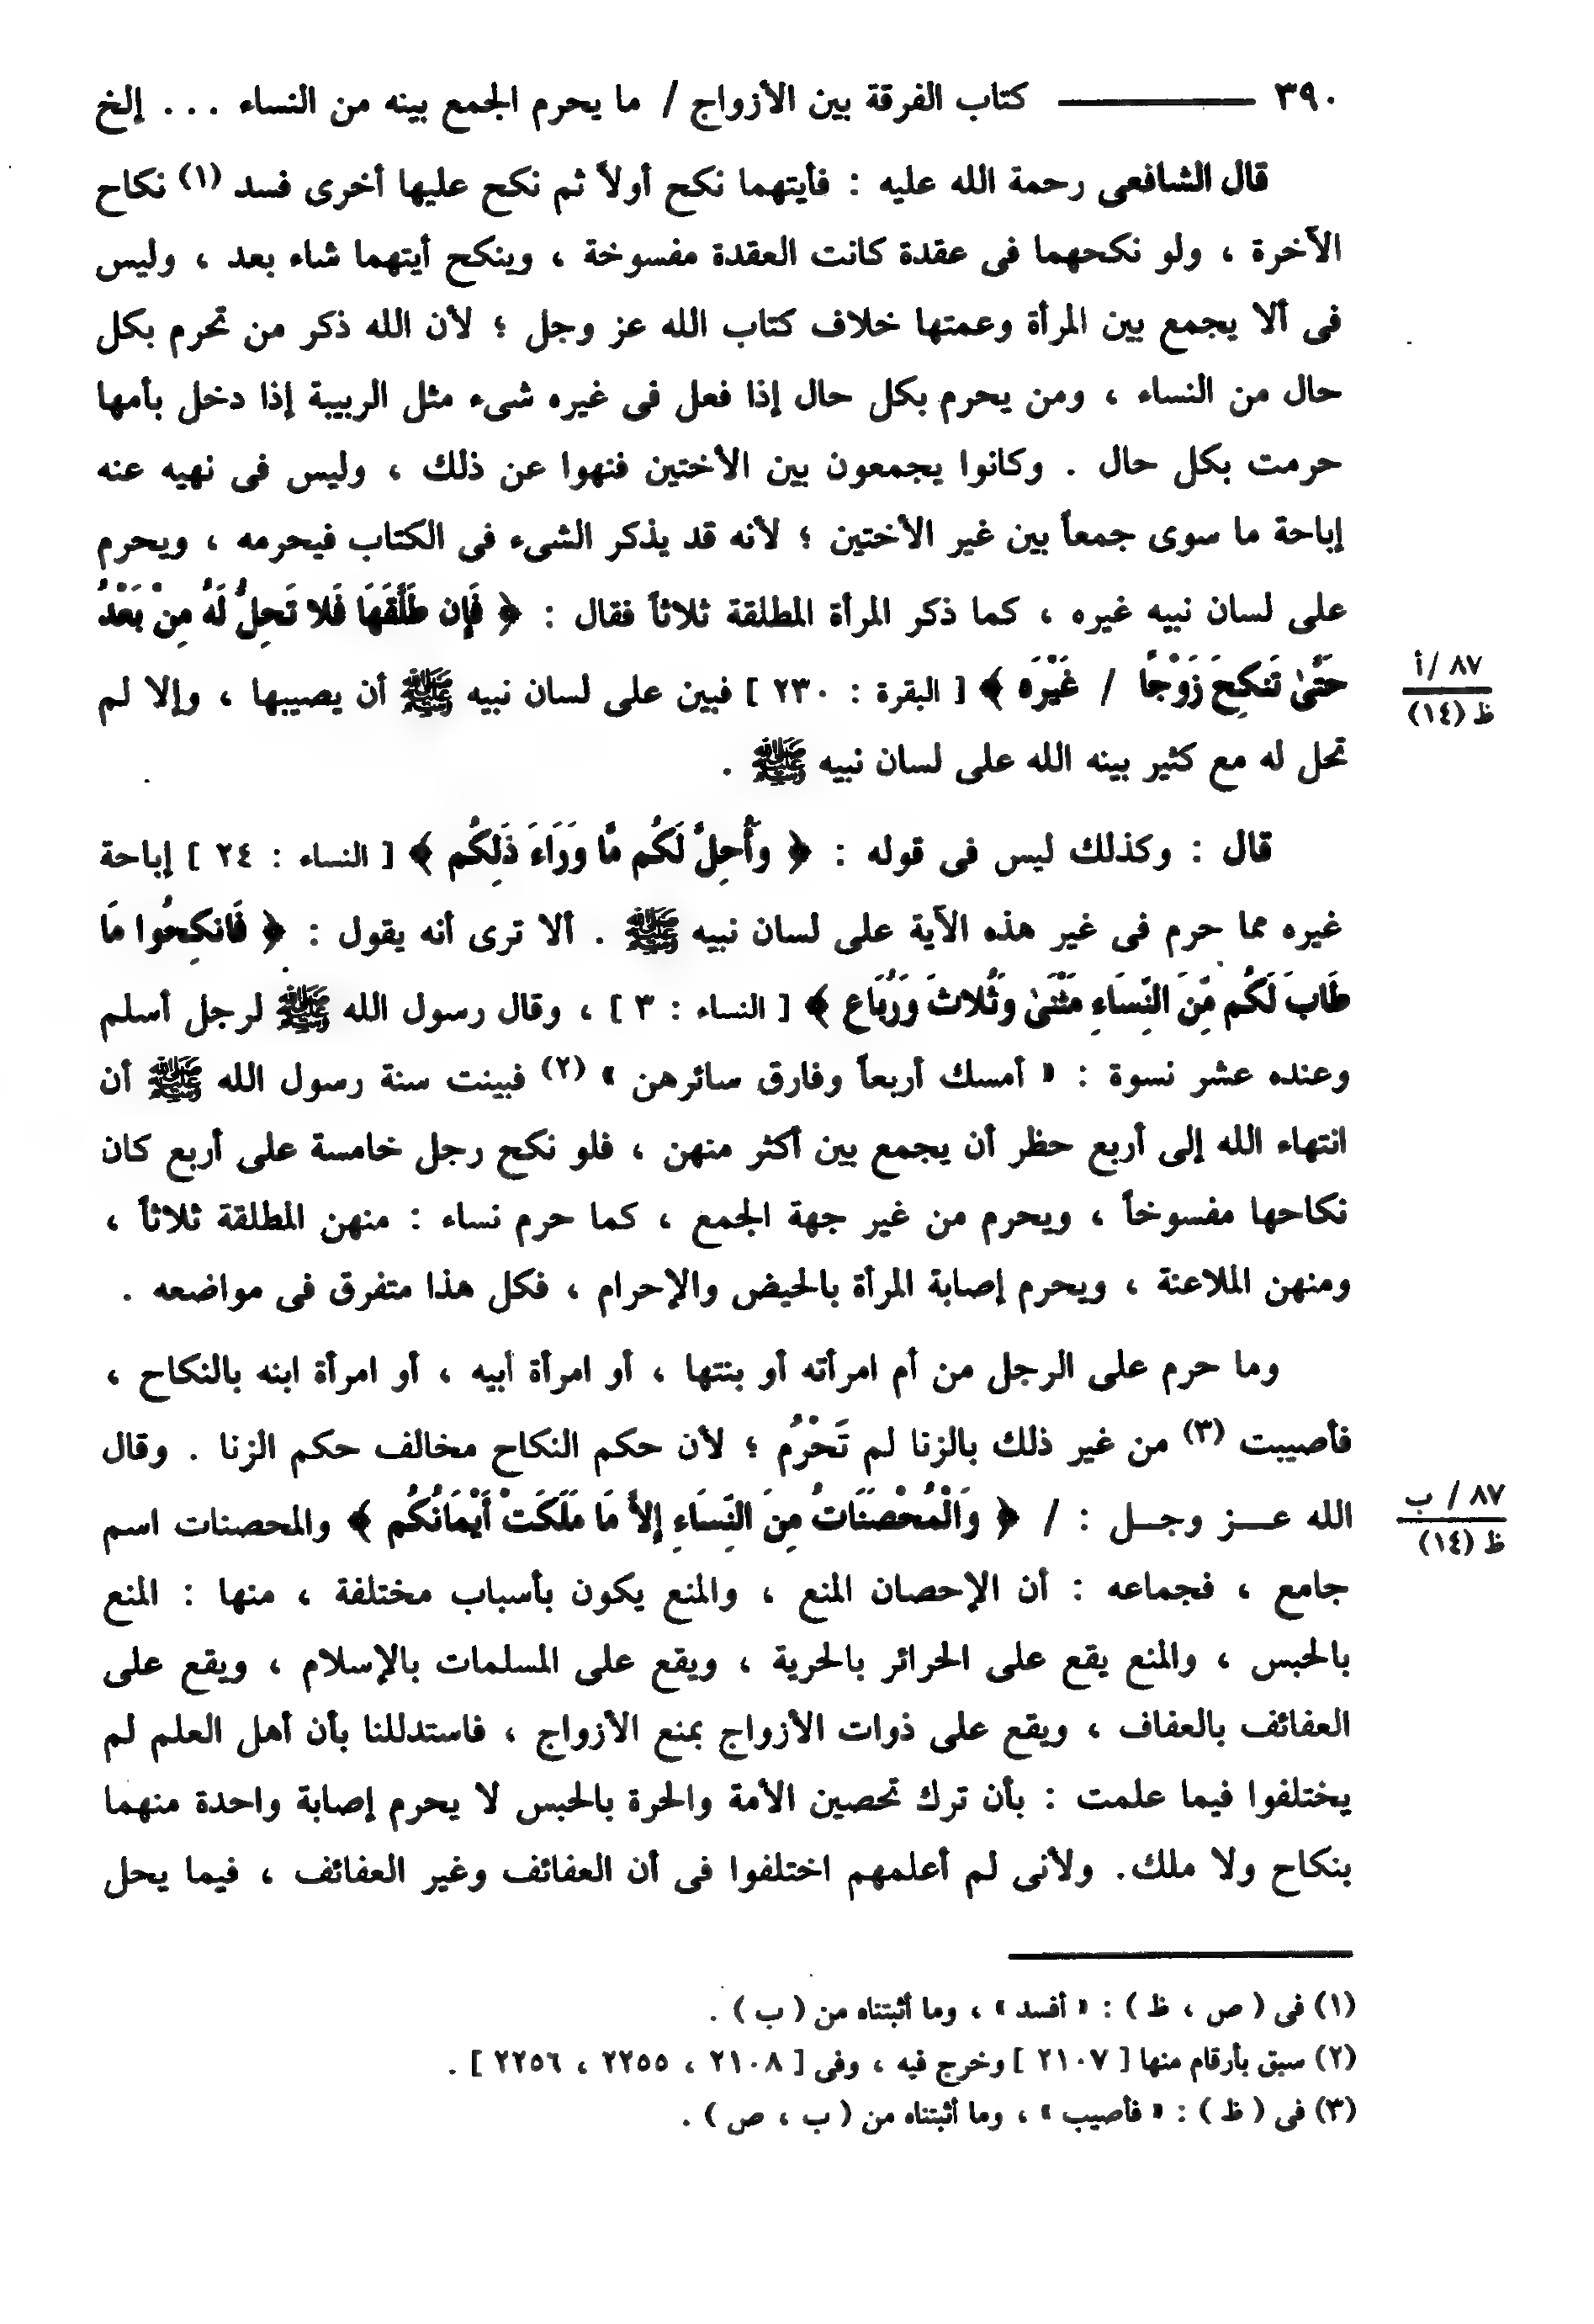 ٣٩٠ ——— كتاب الفرقة بين الأزواج / ما يحرم الجمع بينه من النساء ... إلخ
قال الشافعى رحمة الله عليه : فأيتهما نكح أولاً ثم نكح عليها أخرى فسد (١) نكاح
الآخرة ، ولو نكحهما فى عقدة كانت العقدة مفسوخة ، وينكح أيتهما شاء بعد ، وليس
فى ألا يجمع بين المرأة وعمتها خلاف كتاب الله عز وجل ؛ لأن الله ذكر من تحرم بكل
حال من النساء ، ومن يحرم بكل حال إذا فعل فى غيره شىء مثل الربيبة إذا دخل بأمها
حرمت بكل حال . وكانوا يجمعون بين الأختين فنهوا عن ذلك ، وليس فى نهيه عنه
إباحة ما سوى جمعاً بين غير الأختين ؛ لأنه قد يذكر الشىء فى الكتاب فيحرمه ، ويحرم
على لسان نبيه غيره ، كما ذكر المرأة المطلقة ثلاثاً فقال : ﴿ فَإِن طَلَّقَهَا فَلا تَحِلُّ لَهُ مِنْ بَعْدُ
حَتَّىٰ تَنكِحَ زَوْجًا / غَيْرَه ﴾ [ البقرة : ٢٣٠ ] فبين على لسان نبيه ﷺ أن يصيبها ، وإلا لم
٨٧ /أ
ظ (١٤)
تحل له مع كثير بينه الله على لسان نبيه ﷺ .
قال : وكذلك ليس فى قوله : ﴿ وَأُحِلَّ لَكُم مَّا وَرَاءَ ذَلِكُم ﴾ [ النساء : ٢٤ ] إباحة
غيره مما حرم فى غير هذه الآية على لسان نبيه ﷺ . ألا ترى أنه يقول : ﴿ فَانكِحُوا مَا
طَابَ لَكُم مِّنَ النِّسَاءِ مَثْنَىٰ وَثُلاثَ وَرُبَاعَ ﴾ [ النساء : ٣ ] ، وقال رسول الله ﷺ لرجل أسلم
وعنده عشر نسوة : « أمسك أربعاً وفارق سائرهن » (٢) فبينت سنة رسول الله ﷺ أن
انتهاء الله إلى أربع حظر أن يجمع بين أكثر منهن ، فلو نكح رجل خامسة على أربع كان
نكاحها مفسوخاً ، ويحرم من غير جهة الجمع ، كما حرم نساء : منهن المطلقة ثلاثاً ،
ومنهن الملاعنة ، ويحرم إصابة المرأة بالحيض والإحرام ، فكل هذا متفرق فى مواضعه .
وما حرم على الرجل من أم امرأته أو بنتها ، أو امرأة أبيه ، أو امرأة ابنه بالنكاح ،
فأصيبت (٣) من غير ذلك بالزنا لم تَحْرُم ؛ لأن حكم النكاح مخالف حكم الزنا . وقال
الله عــز وجــل : / ﴿ وَالْمُحْصَنَاتُ مِنَ النِّسَاءِ إِلاَّ مَا مَلَكَتْ أَيْمَانُكُم ﴾ والمحصنات اسم
٨٧ / ب
ظ (١٤)
جامع ، فجماعه : أن الإحصان المنع ، والمنع يكون بأسباب مختلفة ، منها : المنع
بالحبس ، والمنع يقع على الحرائر بالحرية ، ويقع على المسلمات بالإسلام ، ويقع على
العفائف بالعفاف ، ويقع على ذوات الأزواج بمنع الأزواج ، فاستدللنا بأن أهل العلم لم
يختلفوا فيما علمت : بأن ترك تحصين الأمة والحرة بالحبس لا يحرم إصابة واحدة منهما
بنكاح ولا ملك. ولأنى لم أعلمهم اختلفوا فى أن العفائف وغير العفائف ، فيما يحل
(١) فى ( ص ، ظ ) : « أفسد » ، وما أثبتناه من ( ب ) .
(٢) سبق بأرقام منها [ ٢١٠٧ ] وخرج فيه ، وفى [ ٢١٠٨ ، ٢٢٥٥ ، ٢٢٥٦ ] .
(٣) فى ( ظ ) : « فأصيب » ، وما أثبتناه من ( ب ، ص ) .